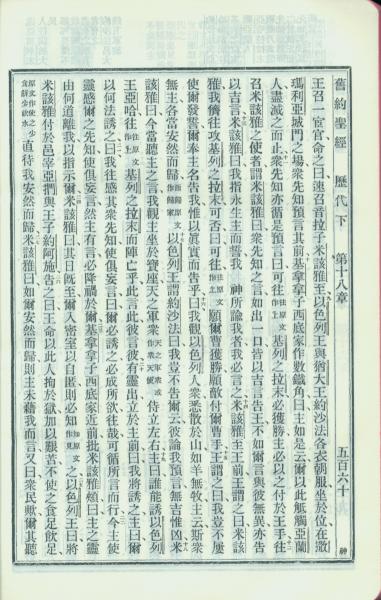 舊約聖經 歷代下 第十八章 五百六十 神
王召一宦官命之曰速召音拉子米該雅至以色列王與猶大王約沙法各衣朝服坐於位在撒
瑪利亞城門之場衆先知預言其前基拿拿子西底家作數鐵角曰主如是云爾以此觝觸亞蘭
人盡滅之而止衆先知亦循是預言曰可往往原文作上基列之拉末必獲勝主必以之付於王手往
召米該雅之使者謂米該雅曰衆先知之言如出一口皆以吉言告王不如爾言與彼無異亦告
以吉言米該雅曰我指永生主而誓我 神所諭我者我必言之米該雅至王前王謂之曰米該
雅我儕往攻基列之拉末可否曰可往往原文作上願爾曹獲勝願敵付爾曹手王謂之曰我豈不屢
使爾發誓爾奉主名告我惟以眞實而告乎曰我觀以色列人衆悉散於山如羊無牧主云斯衆
無主各當安然而歸而歸原文作歸家以色列王謂約沙法曰我豈不告爾云彼論我預言無吉惟凶米
該雅曰今當聽主之言我觀主坐於寶座天之軍衆天之軍衆或作衆天使侍立左右主曰誰能誘以色列
王亞哈往往原文作上基列之拉末而陣亡乎此言此彼言彼有靈出立於主前曰我將誘之主曰爾
以何法誘之曰我往感其衆先知使俱妄言曰爾必誘之必成所欲往哉可循所言而行今主使
靈感爾之先知使俱妄言然主有言必降禍於爾基拿拿子西底家近前批米該雅頰曰主之靈
由何道離我以指示爾米該雅曰其日旣至爾入密室以自匿則必知知原文作見之以色列王曰將
米該雅付於邑宰亞捫與王子約阿施告之曰王命以此人拘於獄加以艱苦不使之食足飲足
原文作使之少食餅少飲水直待我安然而歸米該雅曰如爾安然而歸則主未藉我而言又曰衆民歟爾其聽